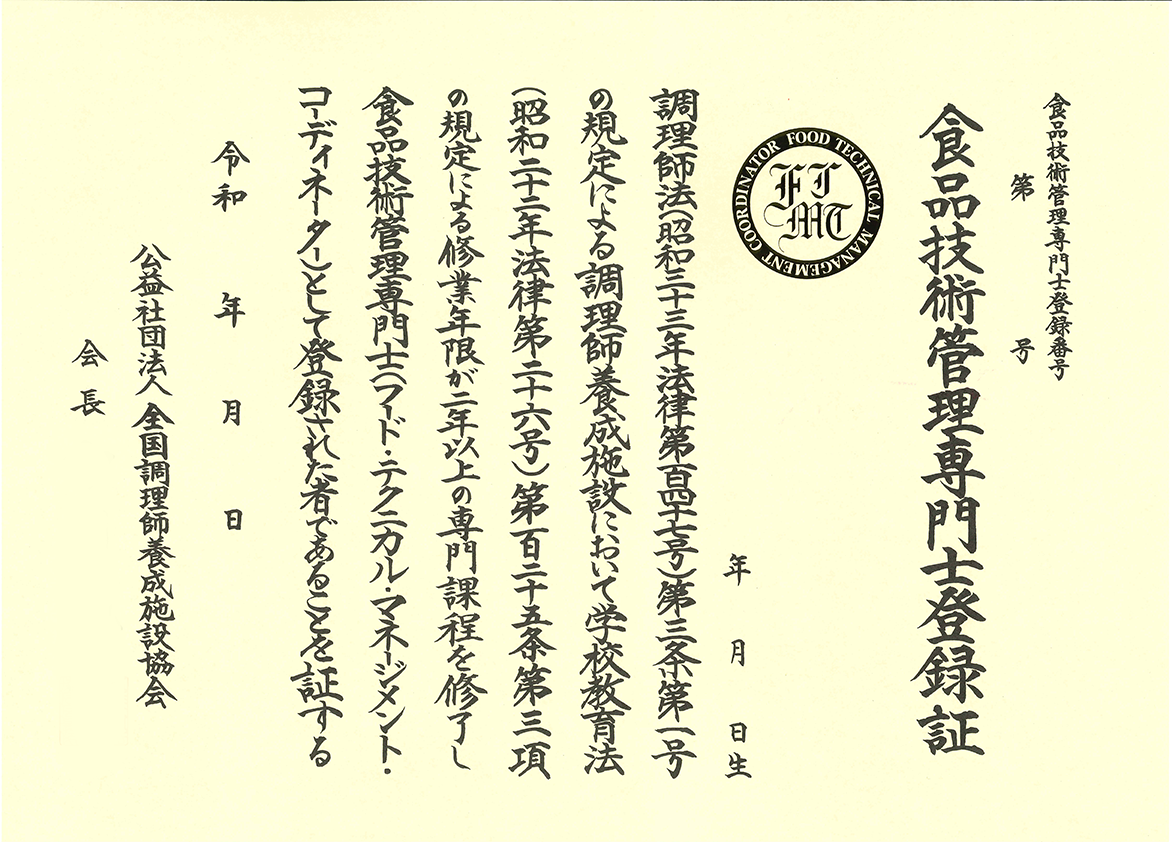 食品技術管理専門士登録番号
第　　　号
食品技術管理専門士登録証
FOOD TECHNICAL MANAGEMENT COORDINATOR
FT
MT
年　月　日生
調理師法(昭和三十三年法律第百四十七号)第三条第一号
の規定による調理師養成施設において学校教育法
(昭和二十二年法律第二十六号)第百二十五条第三項
の規定による修業年限が二年以上の専門課程を修了し
食品技術管理専門士(フード・テクニカル・マネージメント・
コーディネーター)として登録された者であることを証する
令和　年　月　日
公益社団法人 全国調理師養成施設協会
会長